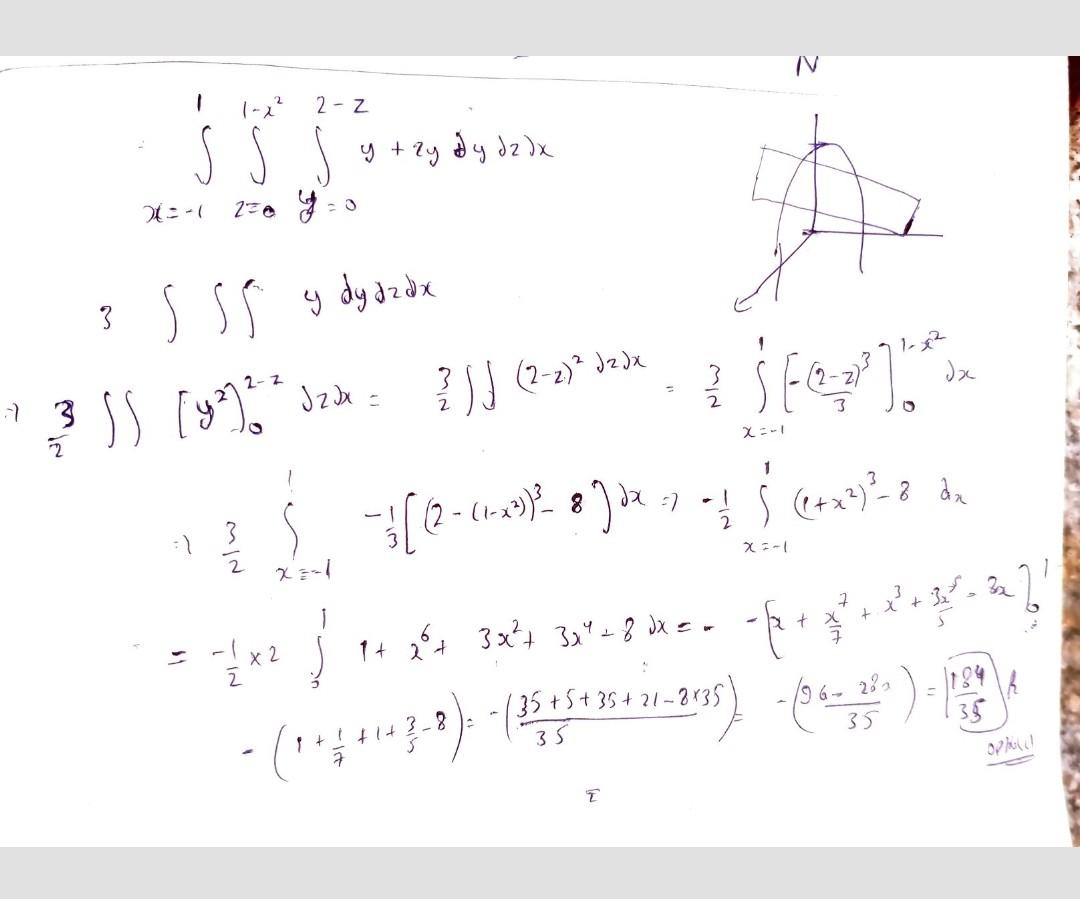 N
∫_{x=-1}^{1} ∫_{z=0}^{1-x²} ∫_{y=0}^{2-z} y + 2y dy dz dx
3 ∫ ∫∫ y dy dz dx
⇒ 3/2 ∫∫ [y²]_0^{2-z} dz dx = 3/2 ∫∫ (2-z)² dz dx = 3/2 ∫_{x=-1}^{1} [-(2-z)³/3]_0^{1-x²} dx
⇒ 3/2 ∫_{x=-1}^{1} -1/3 [(2-(1-x²))³ - 8] dx ⇒ -1/2 ∫_{x=-1}^{1} (1+x²)³ - 8 dx
= -1/2 × 2 ∫^{1} 1 + x⁶ + 3x² + 3x⁴ - 8 dx = - -[x + x⁷/7 + x³ + 3x⁵/5 - 8x]_0^1
- (1 + 1/7 + 1 + 3/5 - 8) = -(35 + 5 + 35 + 21 - 8×35 / 35) = -(96 - 280 / 35) = 184/35